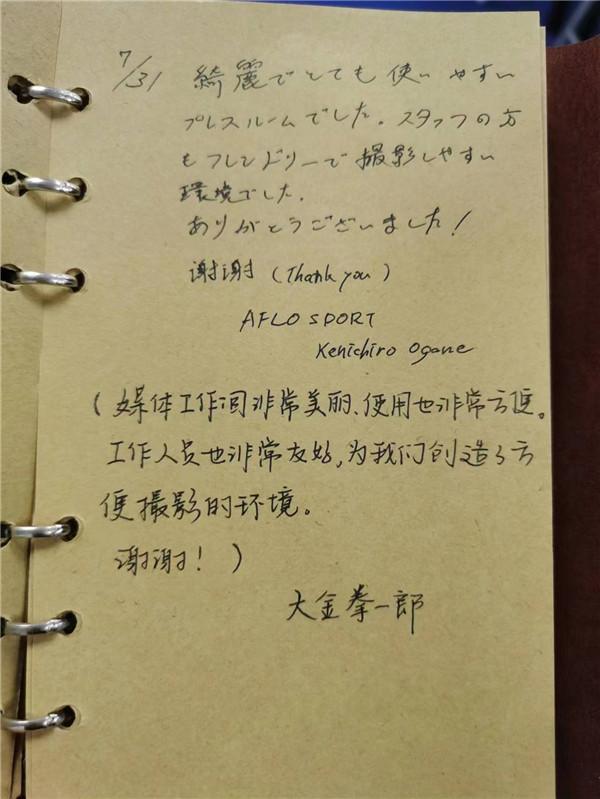 7/31 綺麗でとても使いやすい
プレスルームでした。スタッフの方
もフレンドリーで撮影しやすい
環境でした。
ありがとうございました!
谢谢 (Thank you)
AFLO SPORT
Kenichiro Ogane
(媒体工作间非常美丽、使用也非常方便。
工作人员也非常友好,为我们创造了方
便撮影的环境。
谢谢!)
大金拳一郎